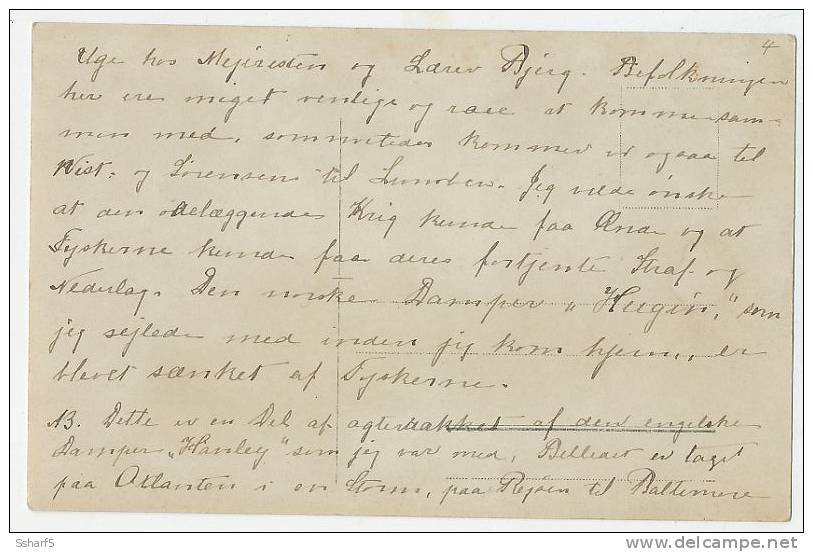 4
Uge hos Mejeresten og Lærer Bjerg. Befolkningen
her ere miget venlige og rare at komme sam-
men med, sommetider kommer vi ogsaa til
Wist- og Sørensens til Lunden. Jeg vilde ønske
at den ødelæggendes Krig kunde faa Ende og at
Tyskerne kunde faa deres fortjente Straf og
Nederlag. Den norske Damper "Hugin," som
jeg sejlede med inden jeg kom hjem, er
blevet sænket af Tyskerne.
NB. Dette er en Del af agterdækket af den engelske
Damper "Hanley" som jeg var med, Billedet er taget
paa Atlanten i en Storm, paa Rejsen til Baltimore
Ssharf5
www.delcampe.net